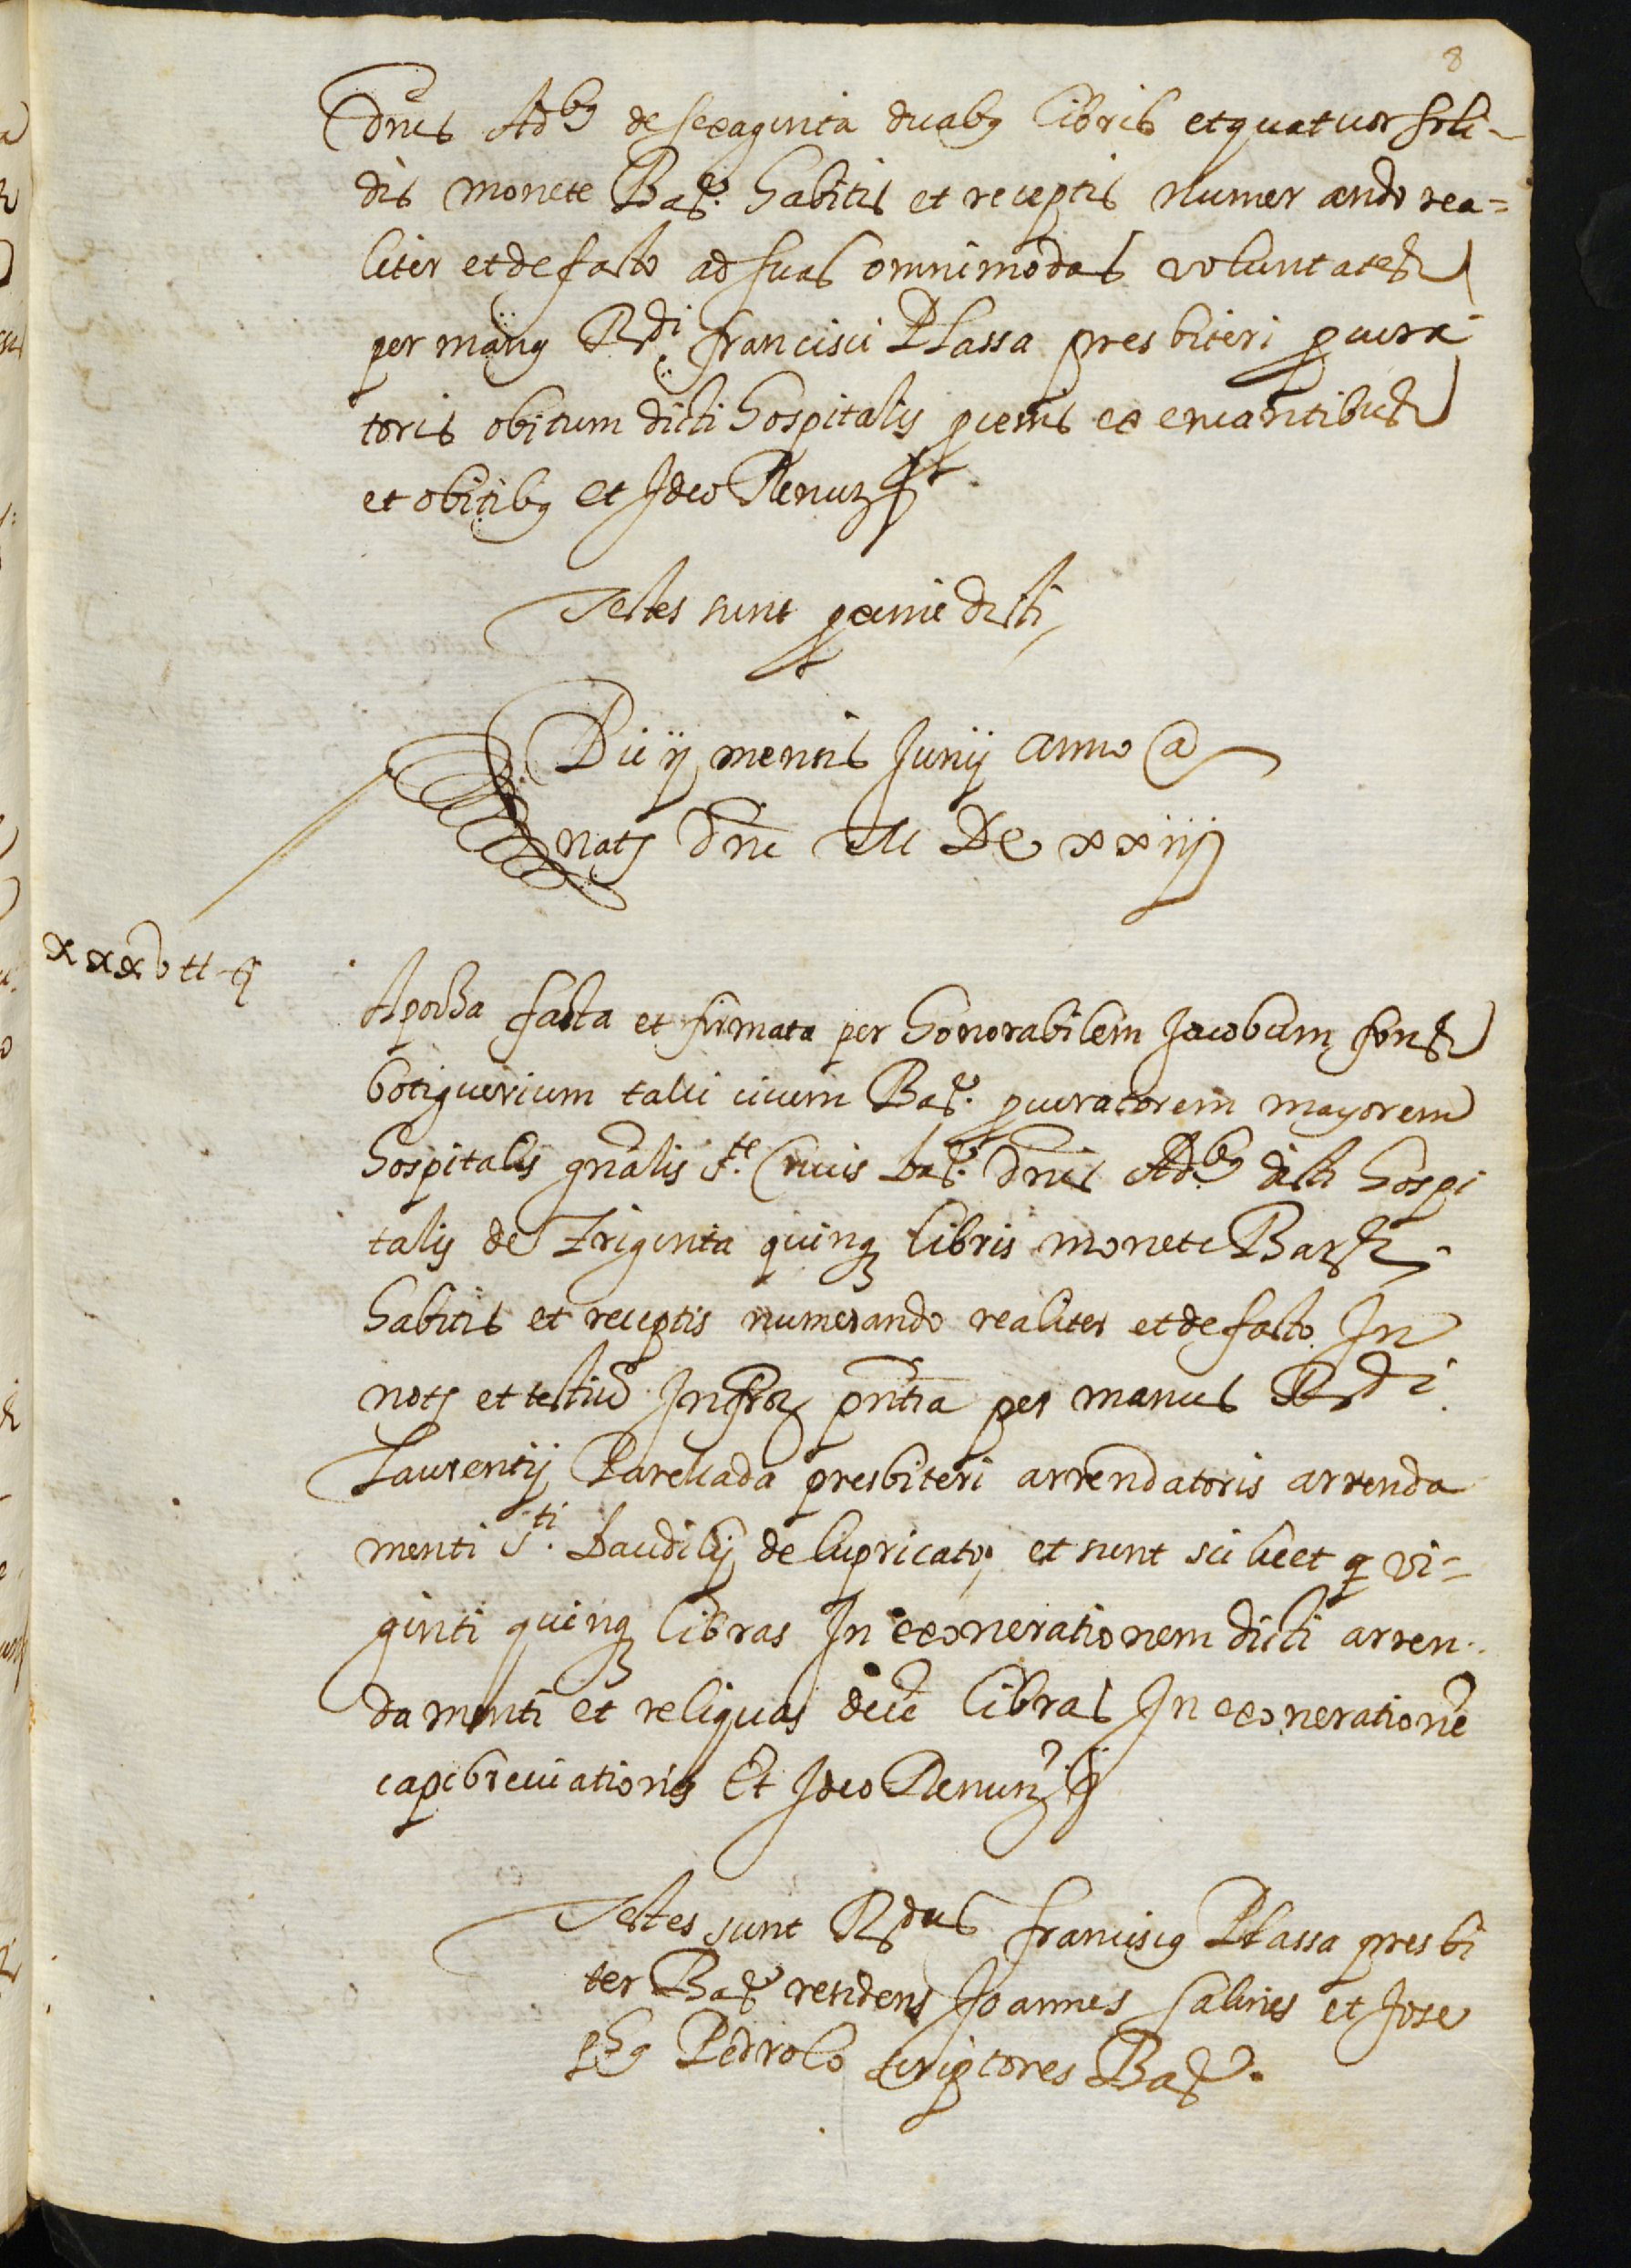 8
Dnis Adbꝯ de sexaginta duabꝯ libris et quatuor soli-
dis monete Barꝭ. habitis et receptis numerando rea=
liter et de facto ad suas omnimodas voluntates
per manꝯ Rdi. francisci Plassa presbiteri procura
toris obituum dicti hospitalis
et obitibꝯ et Ideo Renunꝫ &
Testes sunt proxime dicti
Die ij mensis Junij anno a
natꝭ Dni M DC xxiij
xxxv ll
Apocha facta et firmata per honorabilem Jacobum font
botiguerium talli civem Barꝭ. procuratorem mayorem
hospitalis gnalis Ste. Crucis barꝭ. Dnis Adbꝯ dicti hospi
talis de Triginta quinqꝫ libris monete Barꝭ.
habitis et receptis numerando realiter et de facto In
notꝭ et testiũ Infrꝭ pntia per manus Rdi.
Laurentij Parellada presbiteri arrendatoris arrenda
menti Sti. Baudilij de lupricato, et sunt scilicet ꝓ vi=
ginti quinqꝫ libras In exonerationem dicti arren-
damenti et reliquas decẽ libras In exonerationẽ
capibreviationis Et Ideo Renunꝫ &
Testes sunt Rdus franciscꝯ Plassa presbi
ter Barꝭ residens Joannes salines et Jose
phꝯ Pedrolo scriptores Barꝭ.